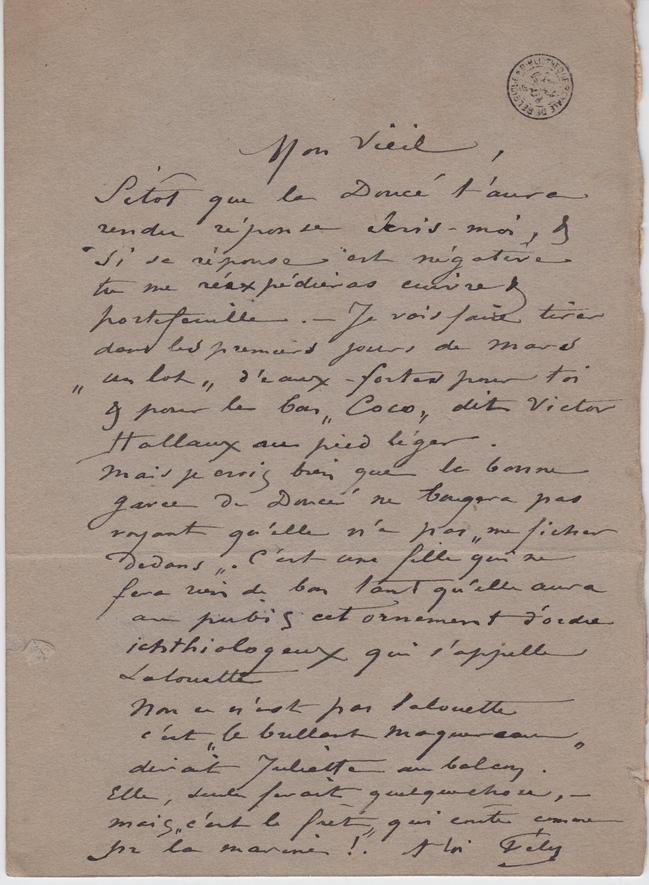 BIBLIOTHÈQUE ROYALE DE BELGIQUE
Mon Vieil,
Sitôt que la Doucé t'aura
rendu réponse écris-moi, &
si sa réponse est négative
tu me réexpédieras cuivre &
portefeuille. — Je vais faire tirer
dans les premiers jours de mars
„ un lot „ d'eaux-fortes pour toi
& pour le bon „ Coco „ dit Victor
Hallaux au pied léger.
Mais je crois bien que la bonne
garce de Doucé ne bougera pas
voyant qu'elle n'a pas „ me ficher
dedans „. C'est une fille qui ne
fera rien de bon tant qu'elle aura
au pubis cet ornement d'ordre
ichthiologeux qui s'appelle
Lalouette
Non ce n'est pas l'alouette
c'est „ le brillant maquereau „
dirait Juliette au balcon.
Elle, seule ferait quelquechose, —
mais „ c'est le frêt „ qui coute comme
pr la marine !. A toi Fély